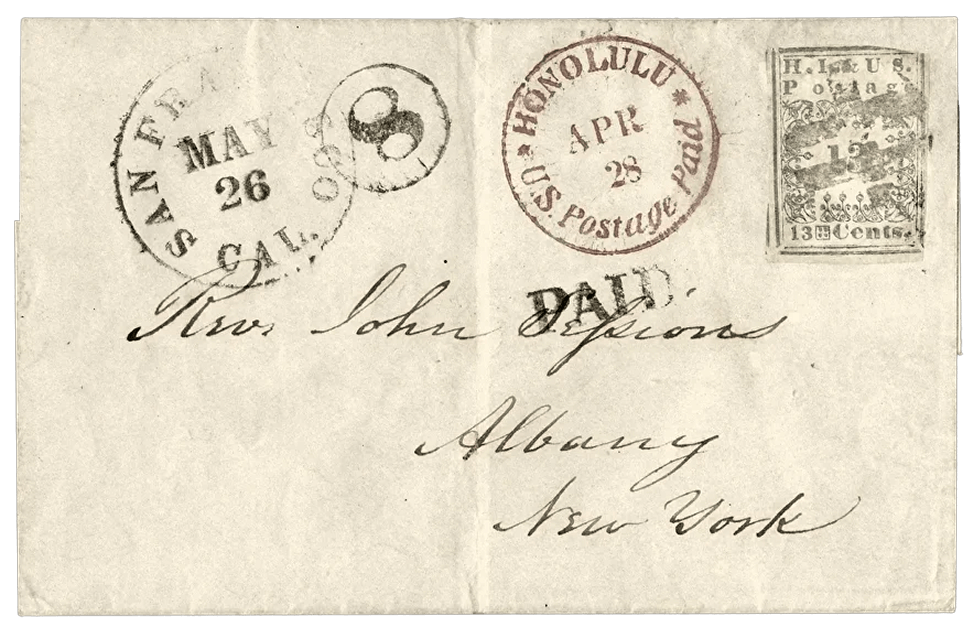 SAN FRA CISCO
MAY
26
CAL.
8
HONOLULU
APR
28
U.S. Postage Paid
H.I. & U S.
Postage
13
13 Cents.
PAID.
Rev. John Sessions
Albany
New York